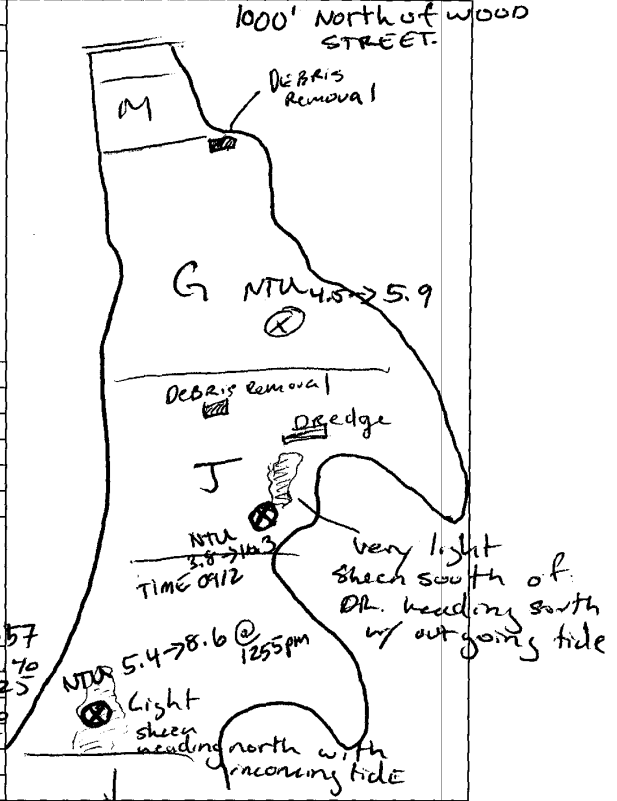 1000' North of WOOD
STREET.
DEBRIS
Removal
M
G
NTU 4.5→5.9
X
DeBRis Removal
DRedge
J
X
NTU
TIME 0912
very light
sheen south of
DR. heading south
w/ outgoing tide
57
NTU 5.4→8.6 @
1255pm
X
Light
sheen
heading north with
incoming tide